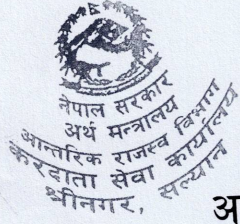 नेपाल सरकार
अर्थ मन्त्रालय
आन्तरिक राजस्व विभाग
करदाता सेवा कार्यालय
श्रीनगर, सल्यान
अ